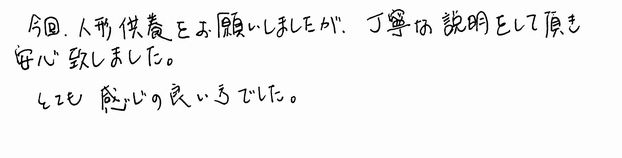 今回、人形供養をお願いしましたが、丁寧な説明をして頂き
安心致しました。
とても感じの良い方でした。